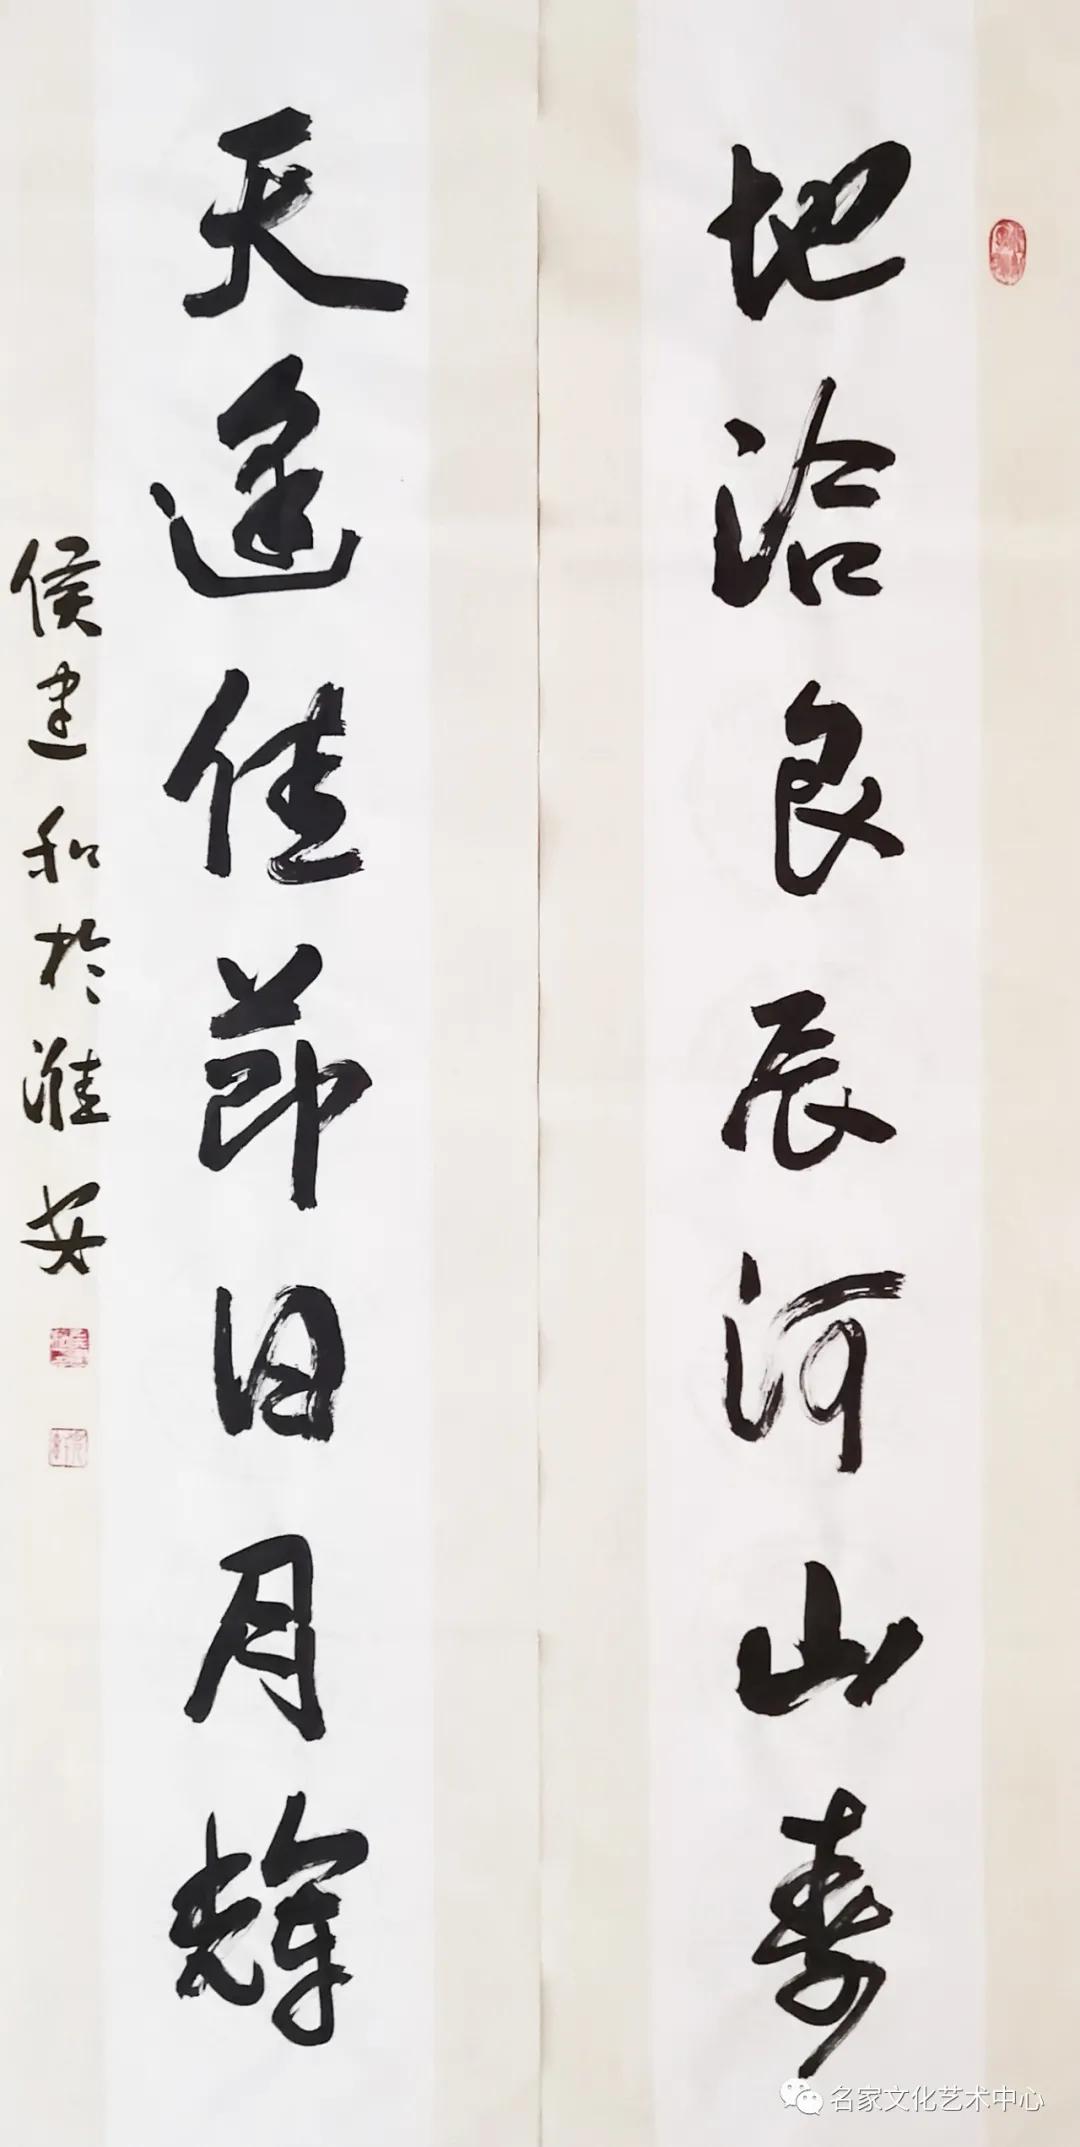 地洽良辰河山寿
天逢佳节日月辉
侯建和於淮安
名家文化艺术中心